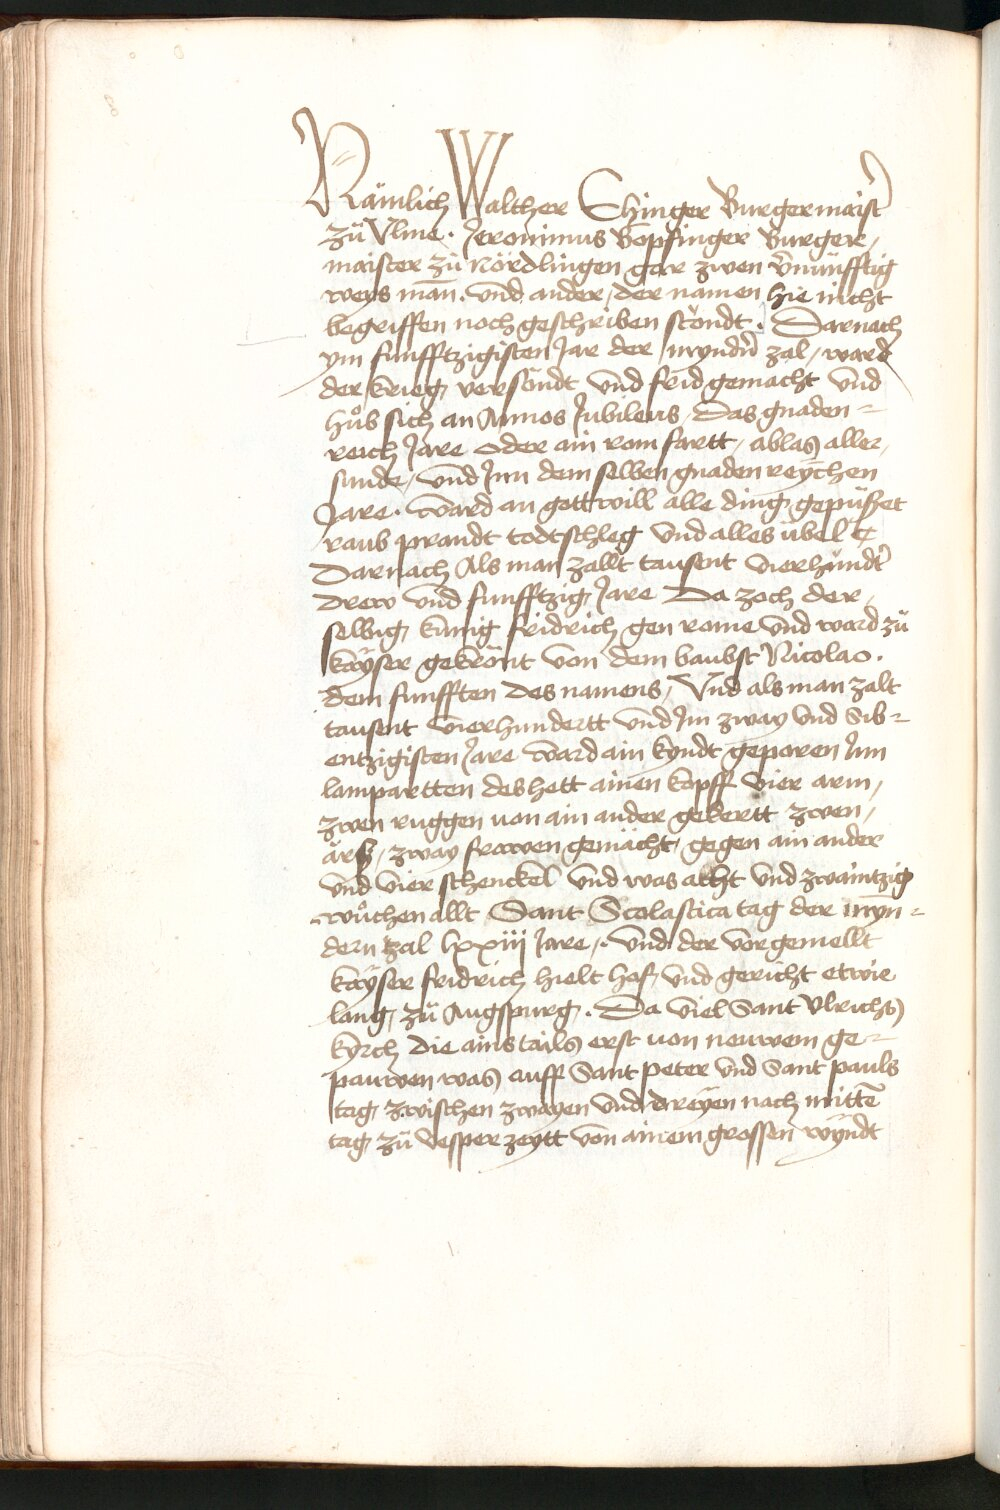 Nämlich Walther Ehinger Burgermaist̃
zů Vlme . Jeronimus Bopfinger Burger /
maister zů Nördlingen gar zwen v̉nünfftig
weys man̄ . vnd ander / der namen hie nicht
begriffen noch geschriben stöndt . Darnach
ym funfftzigisten Jar der mynd̉n zal / ward
der krieg versöndt vnd frid gemacht vnd
hůb sich an Annos Jubileus / Das gnaden =
reich Jare oder ain rom fartt / ablas aller /
sunde / vnd Jnn dem selben gnaden reychen
Jare . ward an gott will alle ding gepüßet
raub prandt todtschleg vnd alles übel ꝛc
Darnach Als man zallt tausent vierhundt̉
drew vnd funfftzig Jare Da zoch der /
selbig kunig fridrich gen rome vnd ward zů
kayser gekrönt von dem baubst Nicolao .
dem funfften des namens / Vnd als man zalt
tausent vierhundertt vnd Jm zway vnd Sib =
entzigisten Jare ward ain kyndt geporen Jnn
lampartten des hett ainen kopff vier arm /
zwen ruggen von ain ander gekertt zwen /
ärß / zway frawen gemächt / gegen ain ander
vnd vier schenckel vnd was acht vnd zwaintzig
wůchen allt Sant Scolastica tag der myn =
dern zal lxxiij Jare / . vnd der vorgemellt
kayser fridrich hielt hof / vnd gericht etwie
lang zů Augspurg . Da viel Sant Vlrichs
kyrch die ains tails erst von neuwem ge =
pauwen was auff Sant peter vnd Sant pauls
tag zwischen zwayen vnd dreyen nach mittē
tag zů vesper zeytt von ainem grossen wyndt